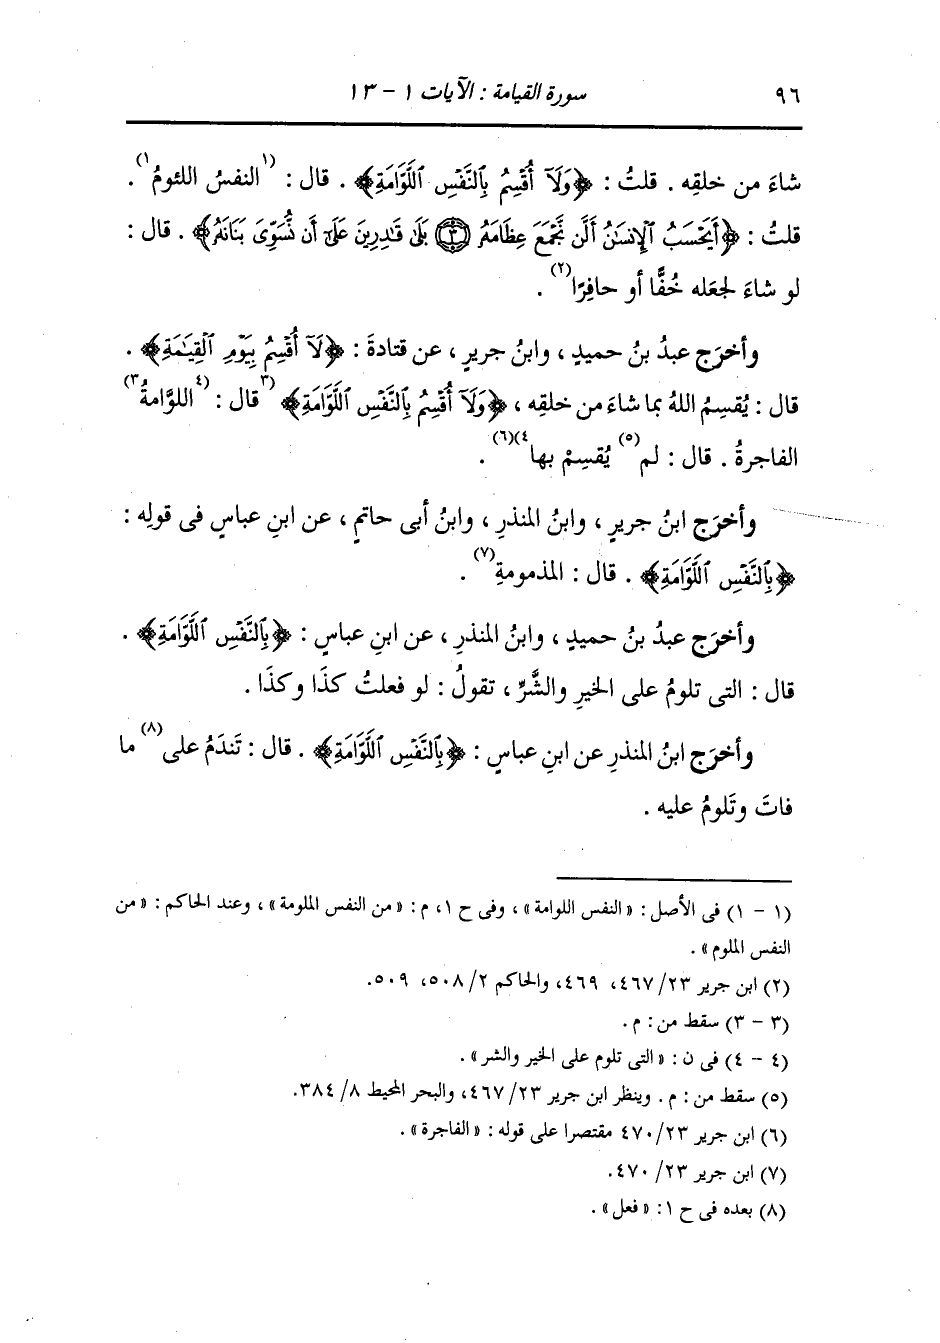 ٩٦ سورة القيامة : الآيات ١ - ١٣
شاءَ من خلقِه . قلتُ : ﴿وَلَآ أُقْسِمُ بِٱلنَّفْسِ ٱللَّوَّامَةِ﴾ . قال : (١النفسُ اللئومُ١) .
قلتُ : ﴿أَيَحْسَبُ ٱلْإِنسَٰنُ أَلَّن نَّجْمَعَ عِظَامَهُۥ ٣ بَلَىٰ قَٰدِرِينَ عَلَىٰٓ أَن نُّسَوِّىَ بَنَانَهُۥ﴾ . قال :
لو شاءَ لجعَله خُفًّا أو حافِرًا(٢) .
وأخرَج عبدُ بنُ حميدٍ ، وابنُ جريرٍ ، عن قتادةَ : ﴿لَآ أُقْسِمُ بِيَوْمِ ٱلْقِيَٰمَةِ﴾ .
قال : يُقسِمُ اللهُ بما شاءَ من خلقِه ، ﴿وَلَآ أُقْسِمُ بِٱلنَّفْسِ ٱللَّوَّامَةِ﴾ (٣قال : (٤اللوَّامةُ٣)
الفاجرةُ . قال : لم(٥) يُقسِمْ بها٤)(٦) .
وأخرَج ابنُ جريرٍ ، وابنُ المنذرِ ، وابنُ أبى حاتمٍ ، عن ابنِ عباسٍ فى قولِه :
﴿بِٱلنَّفْسِ ٱللَّوَّامَةِ﴾ . قال : المذمومةِ(٧) .
وأخرَج عبدُ بنُ حميدٍ ، وابنُ المنذرِ ، عن ابنِ عباسٍ : ﴿بِٱلنَّفْسِ ٱللَّوَّامَةِ﴾ .
قال : التى تلومُ على الخيرِ والشَّرِّ ، تقولُ : لو فعلتُ كذَا وكذَا .
وأخرَج ابنُ المنذرِ عن ابنِ عباسٍ : ﴿بِٱلنَّفْسِ ٱللَّوَّامَةِ﴾ . قال : تَندَمُ على(٨) ما
فاتَ وتَلومُ عليه .
(١ - ١) فى الأصل : «النفس اللوامة» ، وفى ح ١، م : «من النفس الملومة» ، وعند الحاكم : «من
النفس الملوم» .
(٢) ابن جرير ٢٣/ ٤٦٧، ٤٦٩، والحاكم ٢/ ٥٠٨، ٥٠٩.
(٣ - ٣) سقط من : م .
(٤ - ٤) فى ن : «التى تلوم على الخير والشر» .
(٥) سقط من : م . وينظر ابن جرير ٢٣/ ٤٦٧، والبحر المحيط ٨/ ٣٨٤.
(٦) ابن جرير ٢٣/ ٤٧٠ مقتصرا على قوله : «الفاجرة» .
(٧) ابن جرير ٢٣/ ٤٧٠.
(٨) بعده فى ح ١: «فعل» .